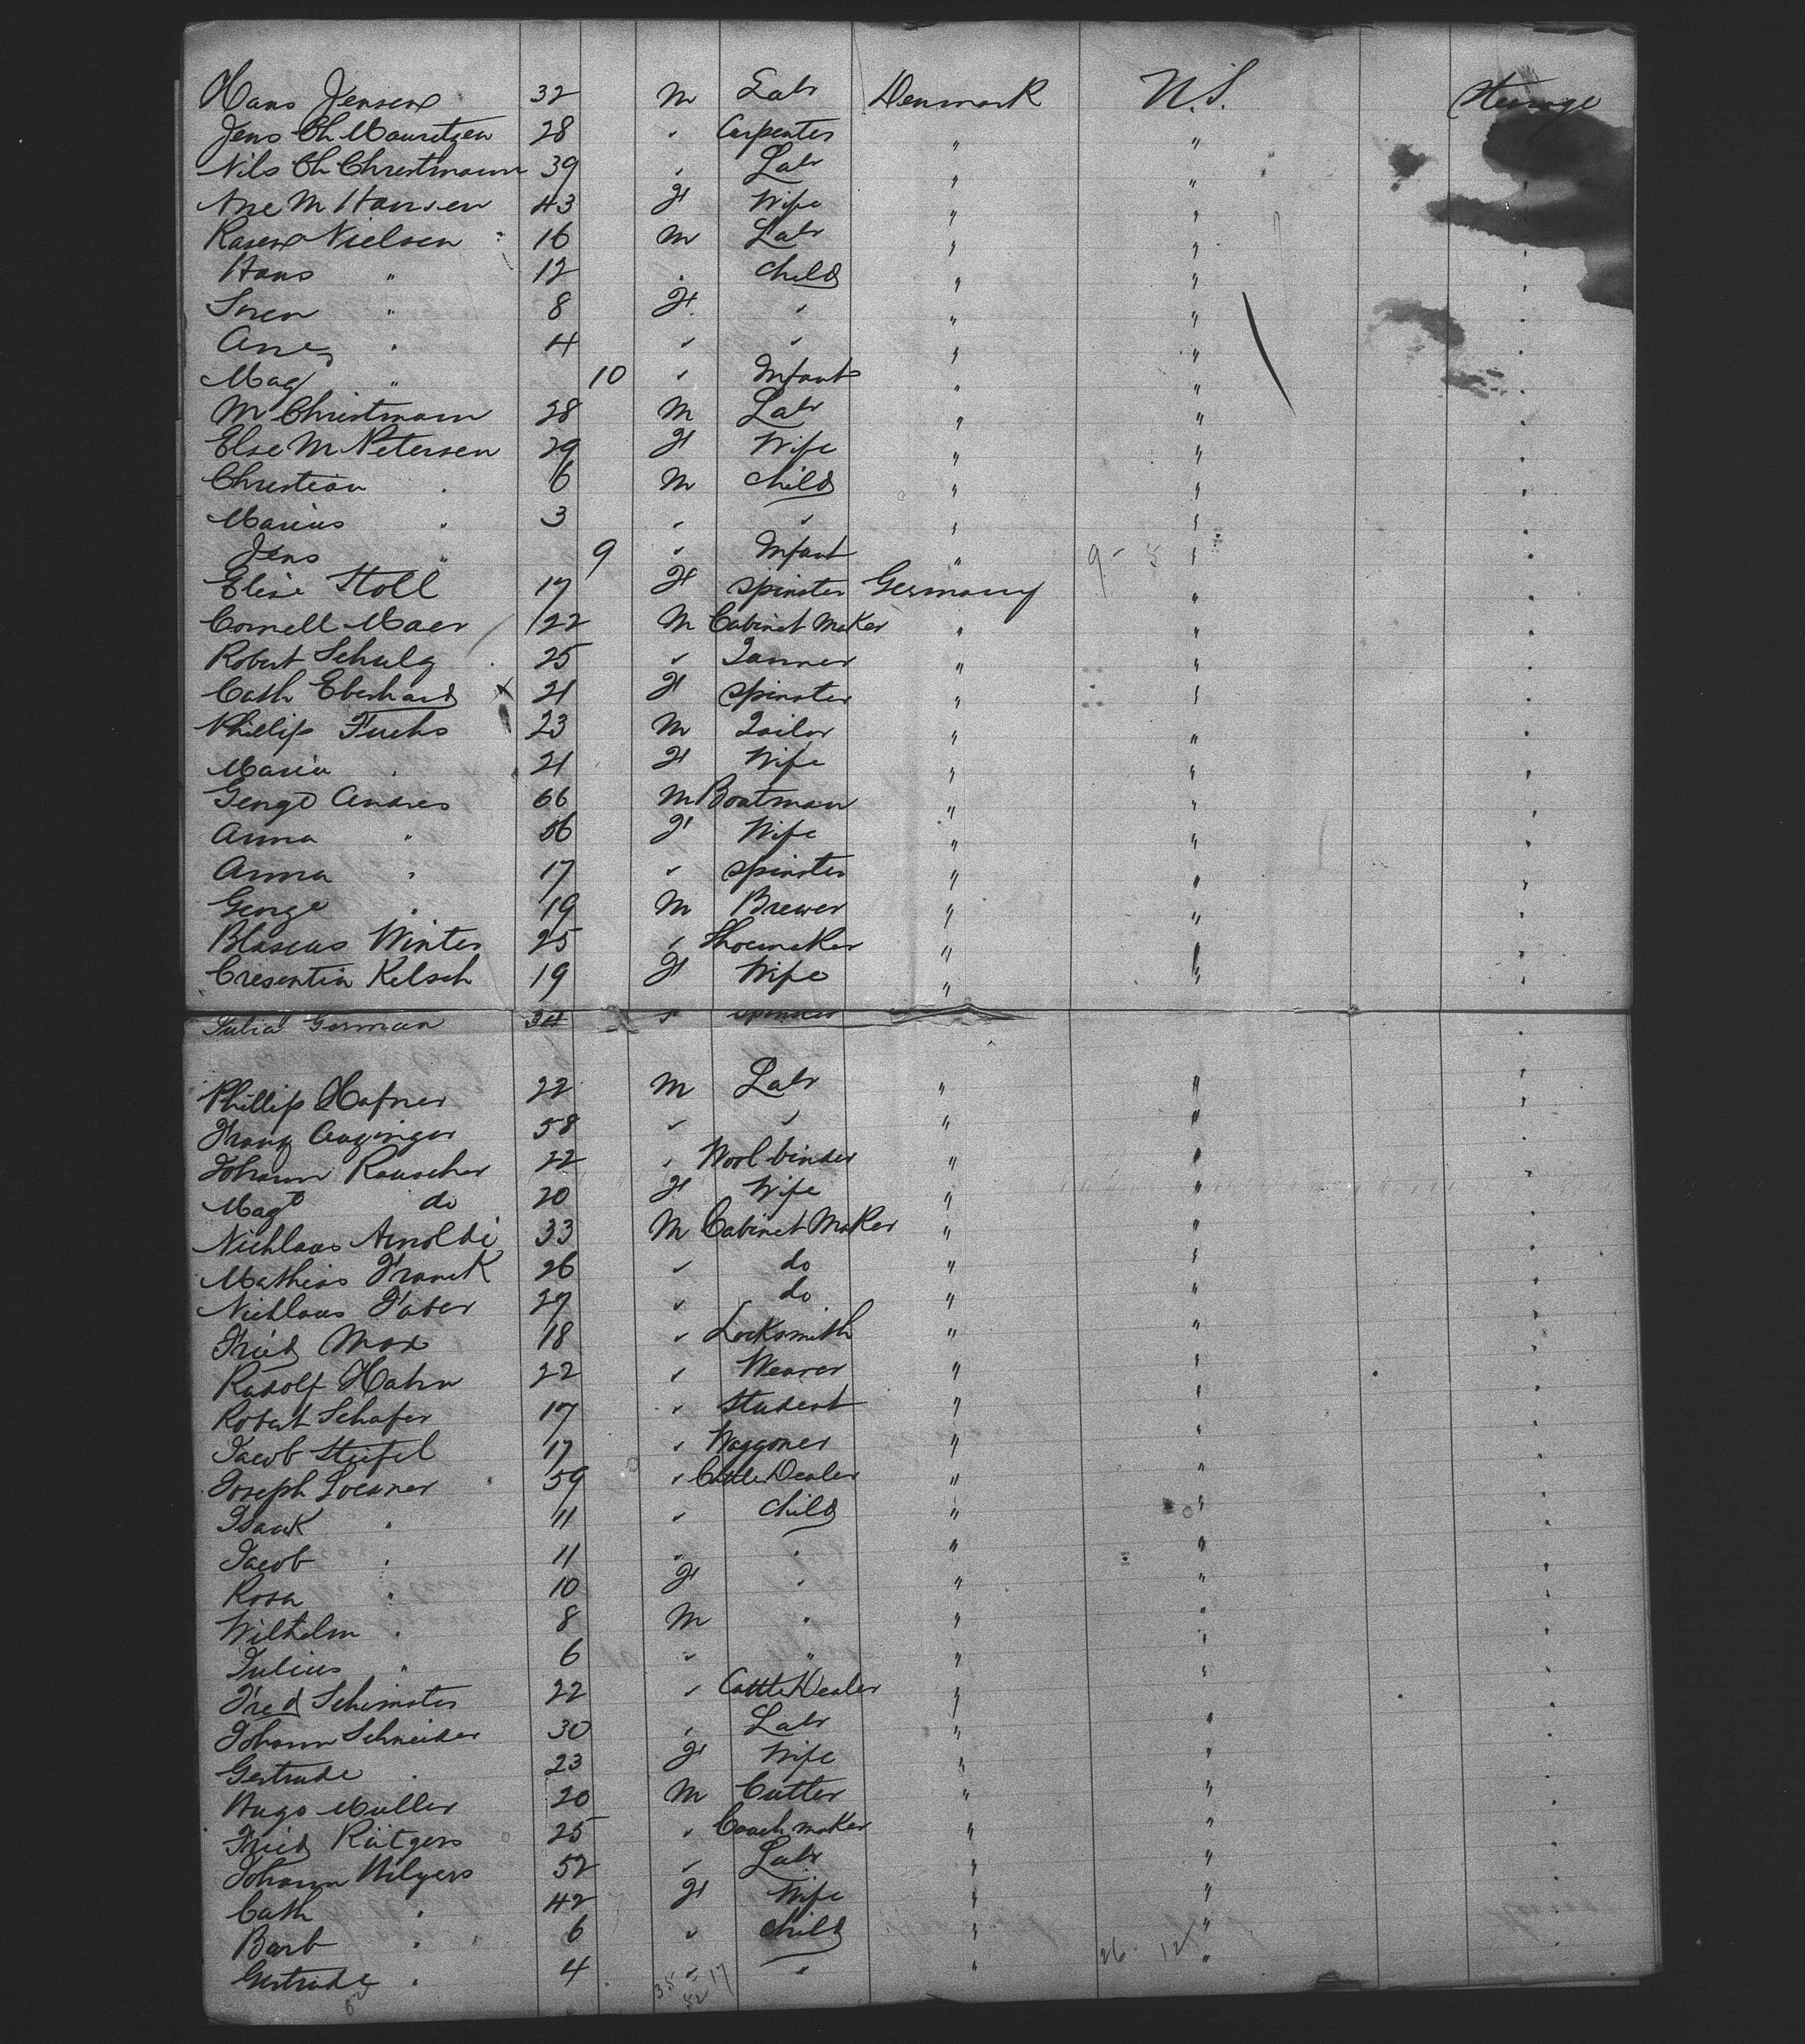 Hans Jensen 32 M Labr Denmark U.S. Steerage
Jens Ch Mouritzen 28 " Carpenter " " "
Nils Ch Christmann 39 " Labr " " "
Ane M Hansen 43 F Wife " " "
Rasens Nielsen 16 M Labr " " "
Hans " 12 " Child " " "
Sören " 8 F " " " "
Ane " 4 " " " " "
Mag " 10 " Infant " " "
M Christmann 28 M Labr " " "
Else M Petersen 29 F Wife " " "
Christian " 6 M Child " " "
Marius " 3 " " " " "
Jens " 9 " Infant " 9 - 5 " "
Elise Stoll 17 F Spinster Germany " "
Cornell Maer 22 M Cabinet Maker " " "
Robert Schulz 25 " Tanner " " "
Cath Eberhard 21 F Spinster " " "
Phillip Fuchs 23 M Tailor " " "
Maria " 21 F Wife " " "
George Andres 66 M Boatman " " "
Anna " 56 F Wife " " "
Anna " 17 " Spinster " " "
George " 19 M Brewer " " "
Blasius Winter 25 " Shoemaker " " "
Cresentia Kelsch 19 F Wife " " "
Julia German 34 " Spinster "
Phillip Hafner 22 M Labr " " "
Franz 58 " " " " "
Johann Rauscher 22 " Wool binder " " "
Magd do 20 F Wife " " "
Nichlaus Arnoldi 33 M Cabinet Maker " " "
Mathias Franck 26 " do " " "
Nichlaus Faber 27 " do " " "
Fried Max 18 " Locksmith " " "
Rudolf Hahn 22 " Weaver " " "
Robert Schafer 17 " Student " " "
Jacob Steifel 17 " Waggoner " " "
Joseph Loesner 59 " Cattle Dealer " " "
Isaak " 11 " Child " " "
Jacob " 11 " " " " "
Rosa " 10 F " " " "
Wilhelm " 8 M " " " "
Julius " 6 " " " " "
Fred Schimster 22 " Cattle Dealer " " "
Johann Schneider 30 " Labr " " "
Gertrude " 23 F Wife " " "
Hugo Muller 20 M Cutter " " "
Fried Rütgers 25 " Coach maker " " "
Johann Hilgers 52 " Labr " " "
Cath " 42 F Wife " " "
Barb " 6 " Child " " "
Gertrude " 4 " " " 26 12 "
35 17
52